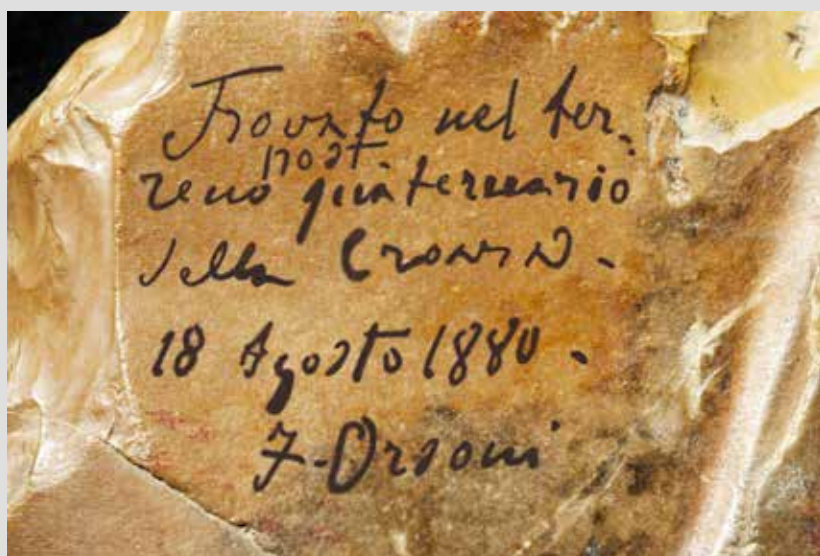 Trovato nel ter-
post.
reno quaternario
della Croara -
18 Agosto 1880 -
F. Orsoni